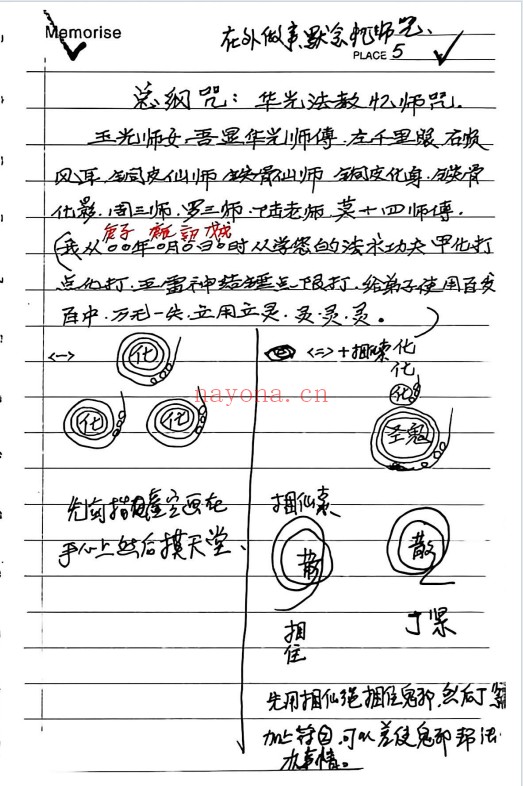 Memorise
在外做事默念忆师咒、
PLACE 5
总纲咒：华光法教忆师咒．
玉光师女，吾显华光师傅．左千里眼右顺
风耳．铜皮仙师 铁骨仙师 铜皮化身．铁骨
化影．周三师．罗三师．陆老师．莫十四师傅．
庚子
我从○○年○月○日○时从学您的法水功夫 甲化打
点化打．五雷神结锤点限打．给弟子使用百发
百中．万无一失．立用立灵．灵．灵．灵。
<一> 化
<二>+捆索 化
化
化 化
化
圣鬼
nayona.cn
先剑指虚空画在
手心上然后摸天堂、
捆仙索
散 散
捆
住
丁紧
先用捆仙绳捆住鬼邪，然后丁紧
加上符因，可以差使鬼邪帮法
办事情。